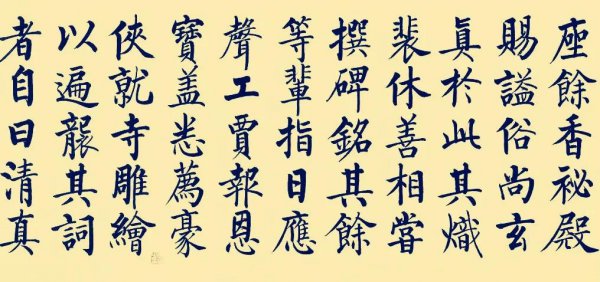 座餘香祕殿
賜謚俗尚玄
眞於此其熾
裴休善相嘗
撰碑銘其餘
等輩指日應
聲工賈報恩
寶盖悉薦豪
俠就寺雕繪
以遍襲其詞
者自曰清真